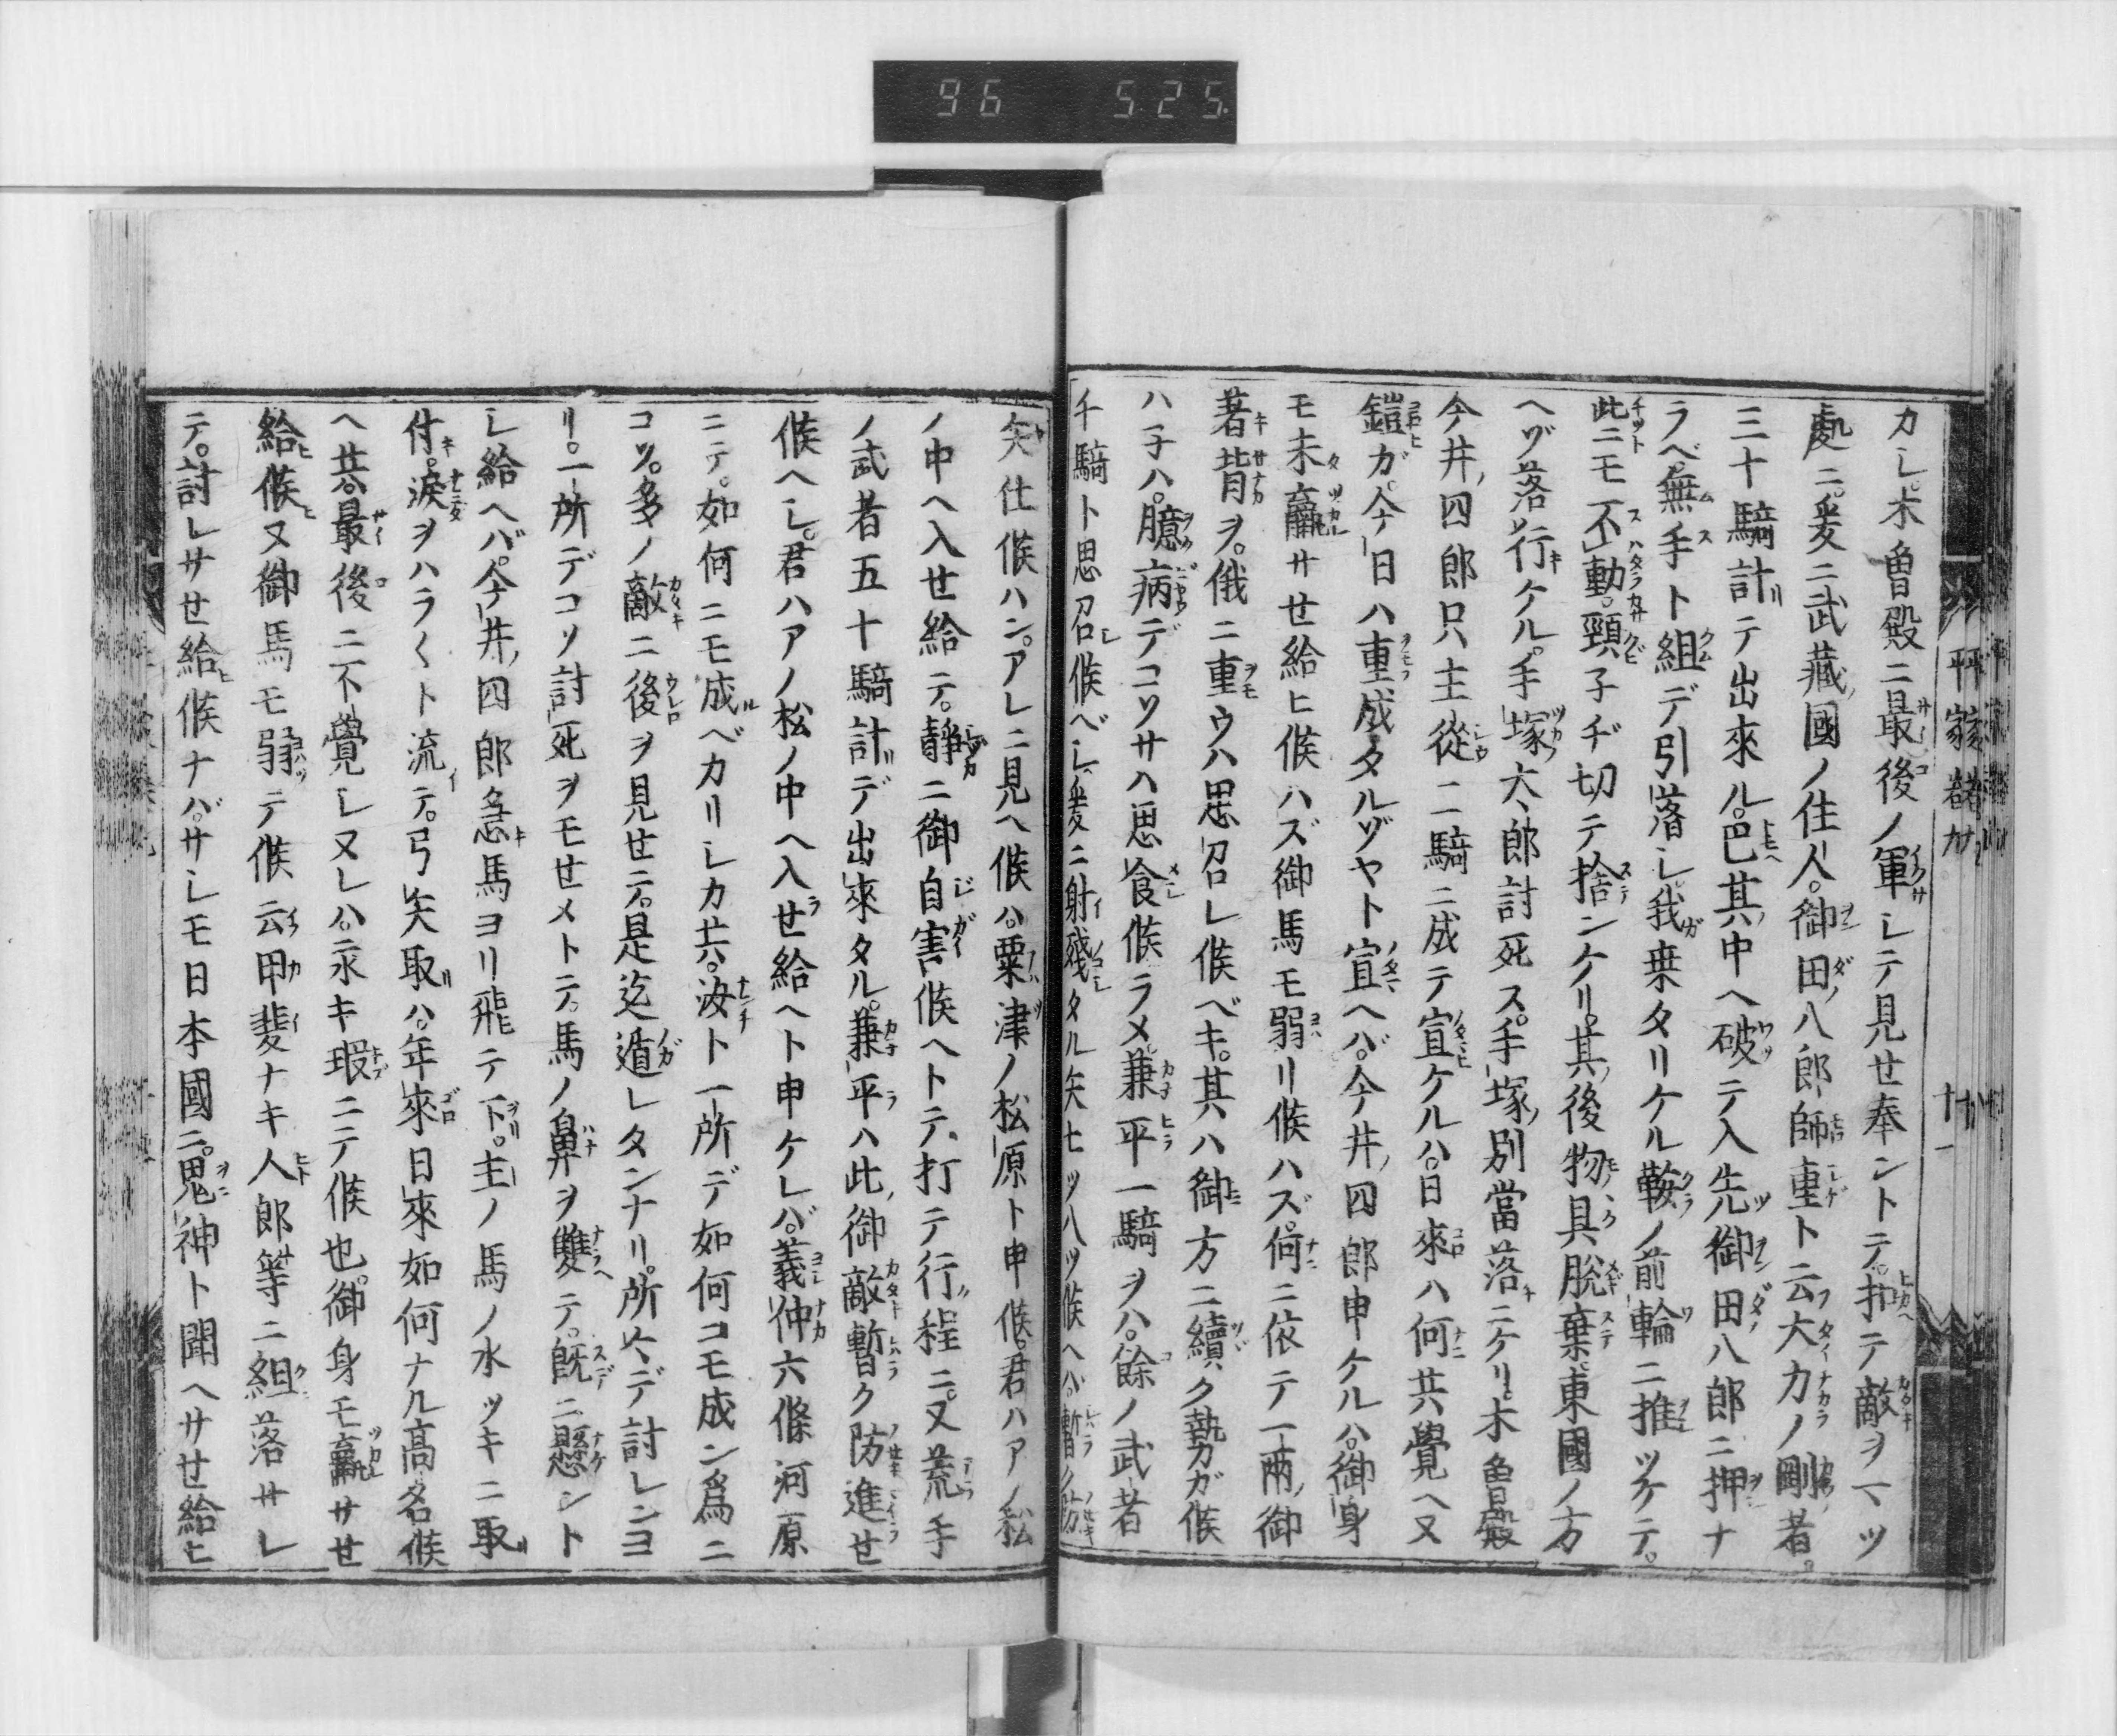 96 525.
カシ。木曽殿ニ最後ノ軍シテ見せ奉ントテ。扣テ敵ヲマツ
處ニ。爰ニ武藏ノ國ノ住人。御田ノ八郎師重ト云大力ノ剛ノ者。
三十騎計テ出來ル。巴其中ヘ破テ入先御田ノ八郎ニ押ナ
ラベ。無手ト組デ引落シ。我乗タリケル鞍ノ前輪ニ推ツケテ。
此ニモ不動。頸子ヂ切テ捨ンケリ。其後物具脱棄東國ノ方
ヘゾ落行ケル。手塚ノ太郎討死ス。手塚ノ別當落ニケリ。木曽殿
今井ノ四郎只主從二騎ニ成テ宣ケルハ。日來ハ何共覺ヘヌ
鎧ガ。今日ハ重成タルゾヤト宣ヘバ。今井ノ四郎申ケルハ。御身
モ未羸サせ給ヒ候ハズ御馬モ弱リ候ハズ。何ニ依テ一兩ノ御
著背ヲ。俄ニ重ウハ思召レ候ベキ。其ハ御方ニ續ク勢ガ候
ハ子ハ。臆病デコソサハ思食候ラメ。兼平一騎ヲハ。餘ノ武者
千騎ト思召候ベシ。爰ニ射殘タル矢七ツ八ツ候ヘハ。暫ク防
平家 十一
矢仕候ハン。アレニ見ヘ候ハ。粟津ノ松原ト申候。君ハアノ松
ノ中ヘ入せ給テ。靜ニ御自害候ヘトテ、打テ行程ニ。又荒手
ノ武者五十騎計デ出來タル。兼平ハ此ノ御敵暫ク防進せ
候ヘシ。君ハアノ松ノ中ヘ入せ給ヘト申ケレバ。義仲六條河原
ニテ。如何ニモ成ベカリシカ共。汝ト一所デ如何コモ成ン爲ニ
コソ。多ノ敵ニ後ヲ見せテ。是迄遁レタンナリ。所々デ討レンヨ
リ。一所デコソ討死ヲモせメトテ。馬ノ鼻ヲ雙テ。既ニ懸ント
シ給ヘバ。今井ノ四郎急馬ヨリ飛テ下。主ノ馬ノ水ツキニ取
付。淚ヲハラ〱ト流テ。弓矢取ハ。年來日來如何ナル高名候
ヘ共。最後ニ不覺シヌレハ。永キ瑕ニテ候也。御身モ羸サせ
給候ヌ御馬モ弱テ候云甲斐ナキ人郎等ニ組落サレ
テ。討レサせ給候ナバ。サシモ日本國ニ。鬼神ト聞ヘサせ給ヒ